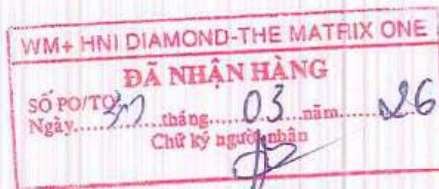 WM+ HNI DIAMOND-THE MATRIX ONE
ĐÃ NHẬN HÀNG
SỐ PO/TO
Ngày.........tháng.....03.....năm......26
Chữ ký người nhận